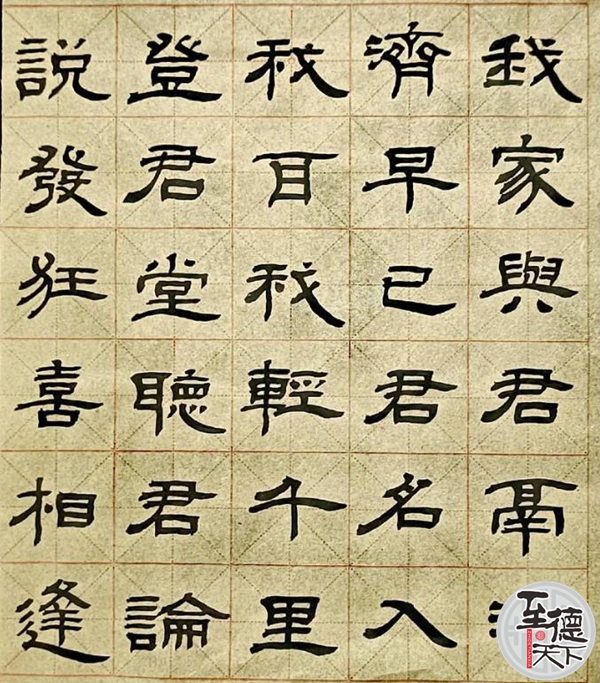 我家與君鬲
濟早已君名入
我耳我輕千里
登君堂聽君論
説發狂喜相逢
至德天下